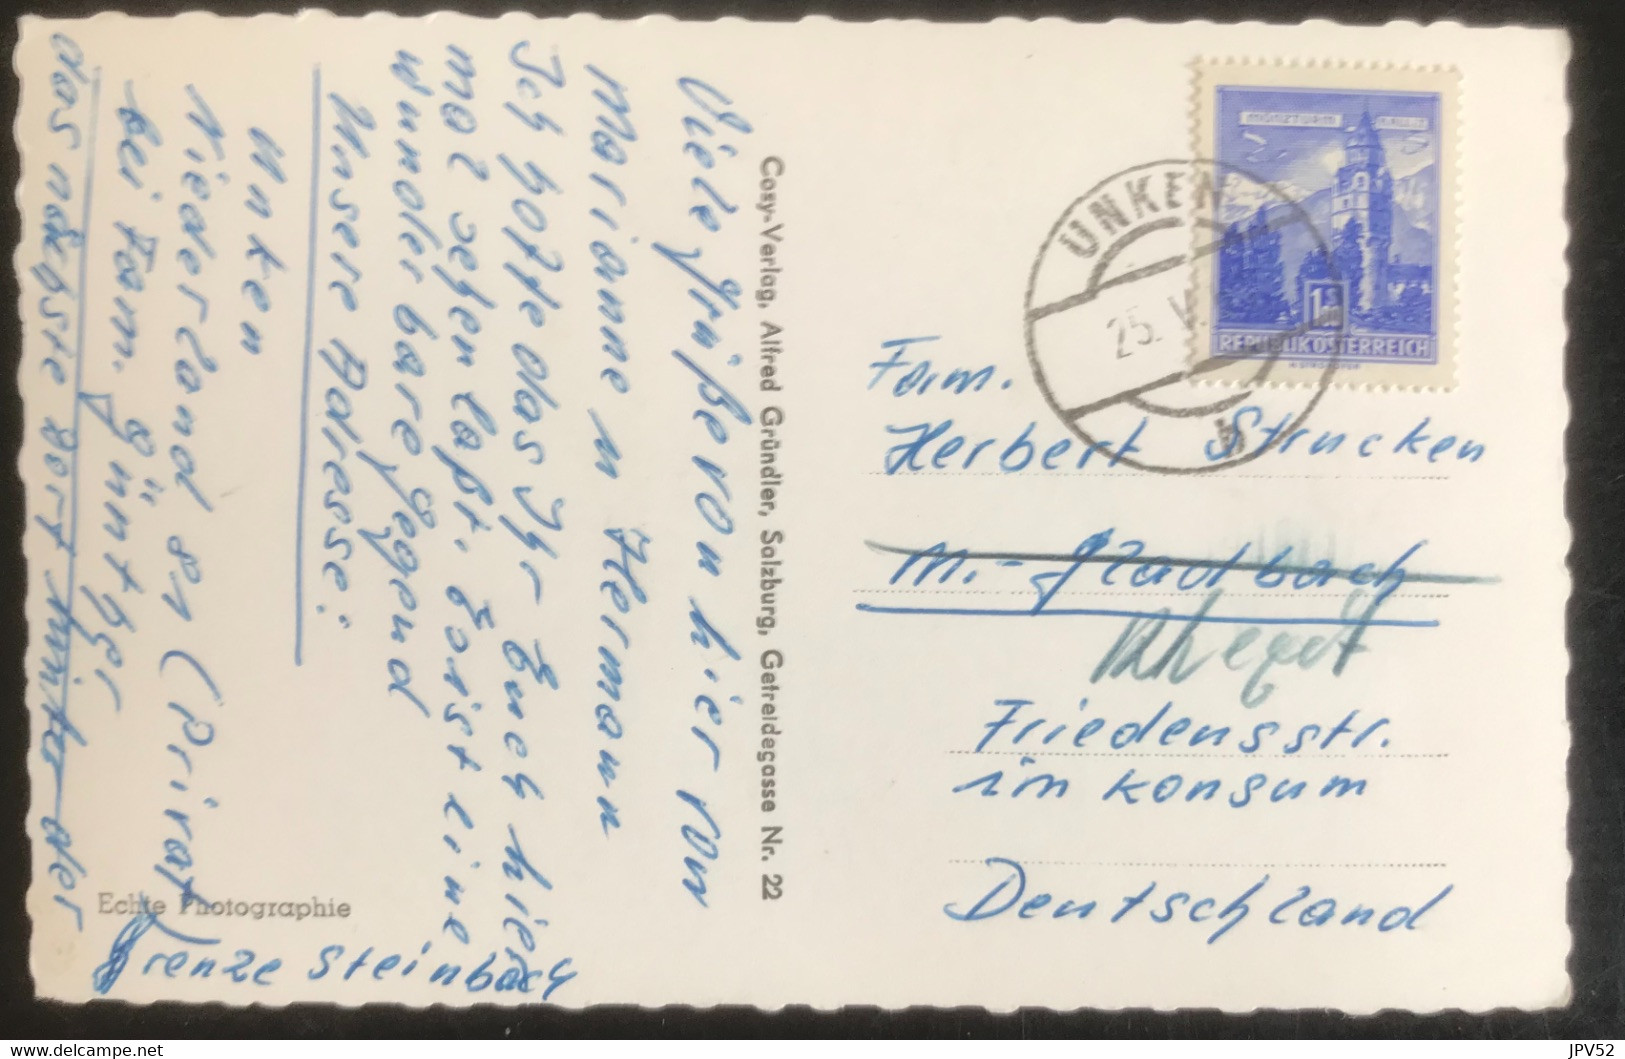 Viele Grüße von hier von
Marianne u Hermann
Ich hoffe das Ihr Euch hier
mal sehen laßt. Es ist eine
wunderbare Gegend
Unsere Adresse:
Unken
Niederland 81 (Privat)
bei Fam. Günther
das nächste Dorf hinter der
Grenze Steinbach
Echte Photographie
Cosy-Verlag, Alfred Gründler, Salzburg, Getreidegasse Nr. 22
UNKEN
25. V
b
MÜNZTURM
1.50
REPUBLIK ÖSTERREICH
Fam.
Herbert Strucken
M.-Gladbach
Rheydt
Friedensstr.
im Konsum
Deutschland
JPV52